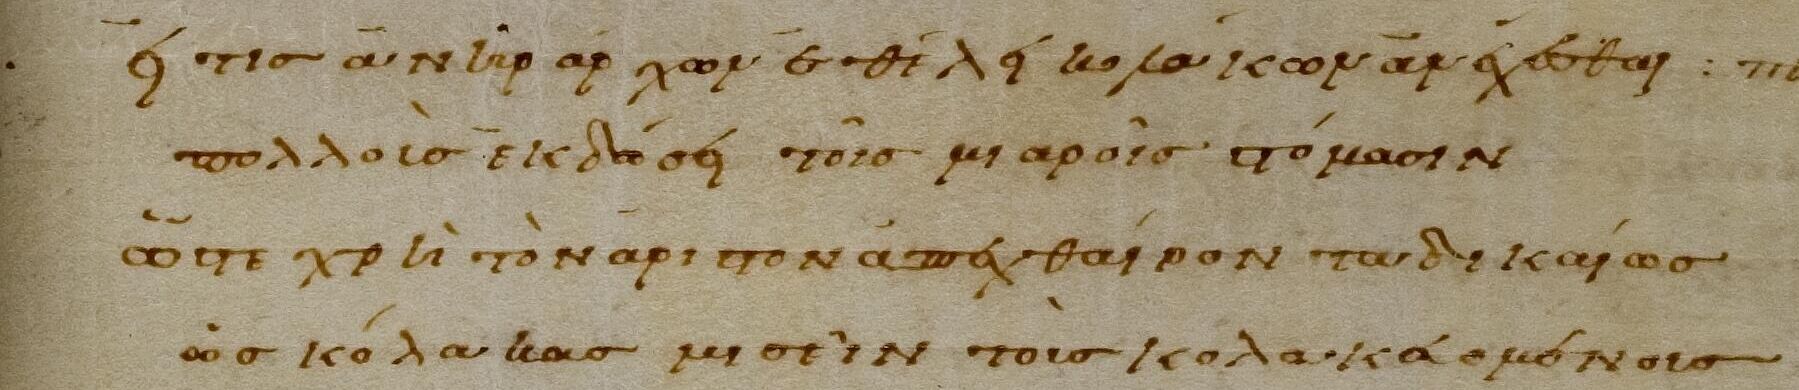 εἴ τις ἀνὴρ ἄρχων ἐθέλει κολάκων ἀνέχεσθαι :
πολλοὺς ἐκδώσει τοῖς μιαροῖς στόμασιν
ὥστε χρὴ τὸν ἄριστον ἀπεχθαίροντα δικαίως
ὡς κόλακας μισεῖν τοὺς κολακευομένους